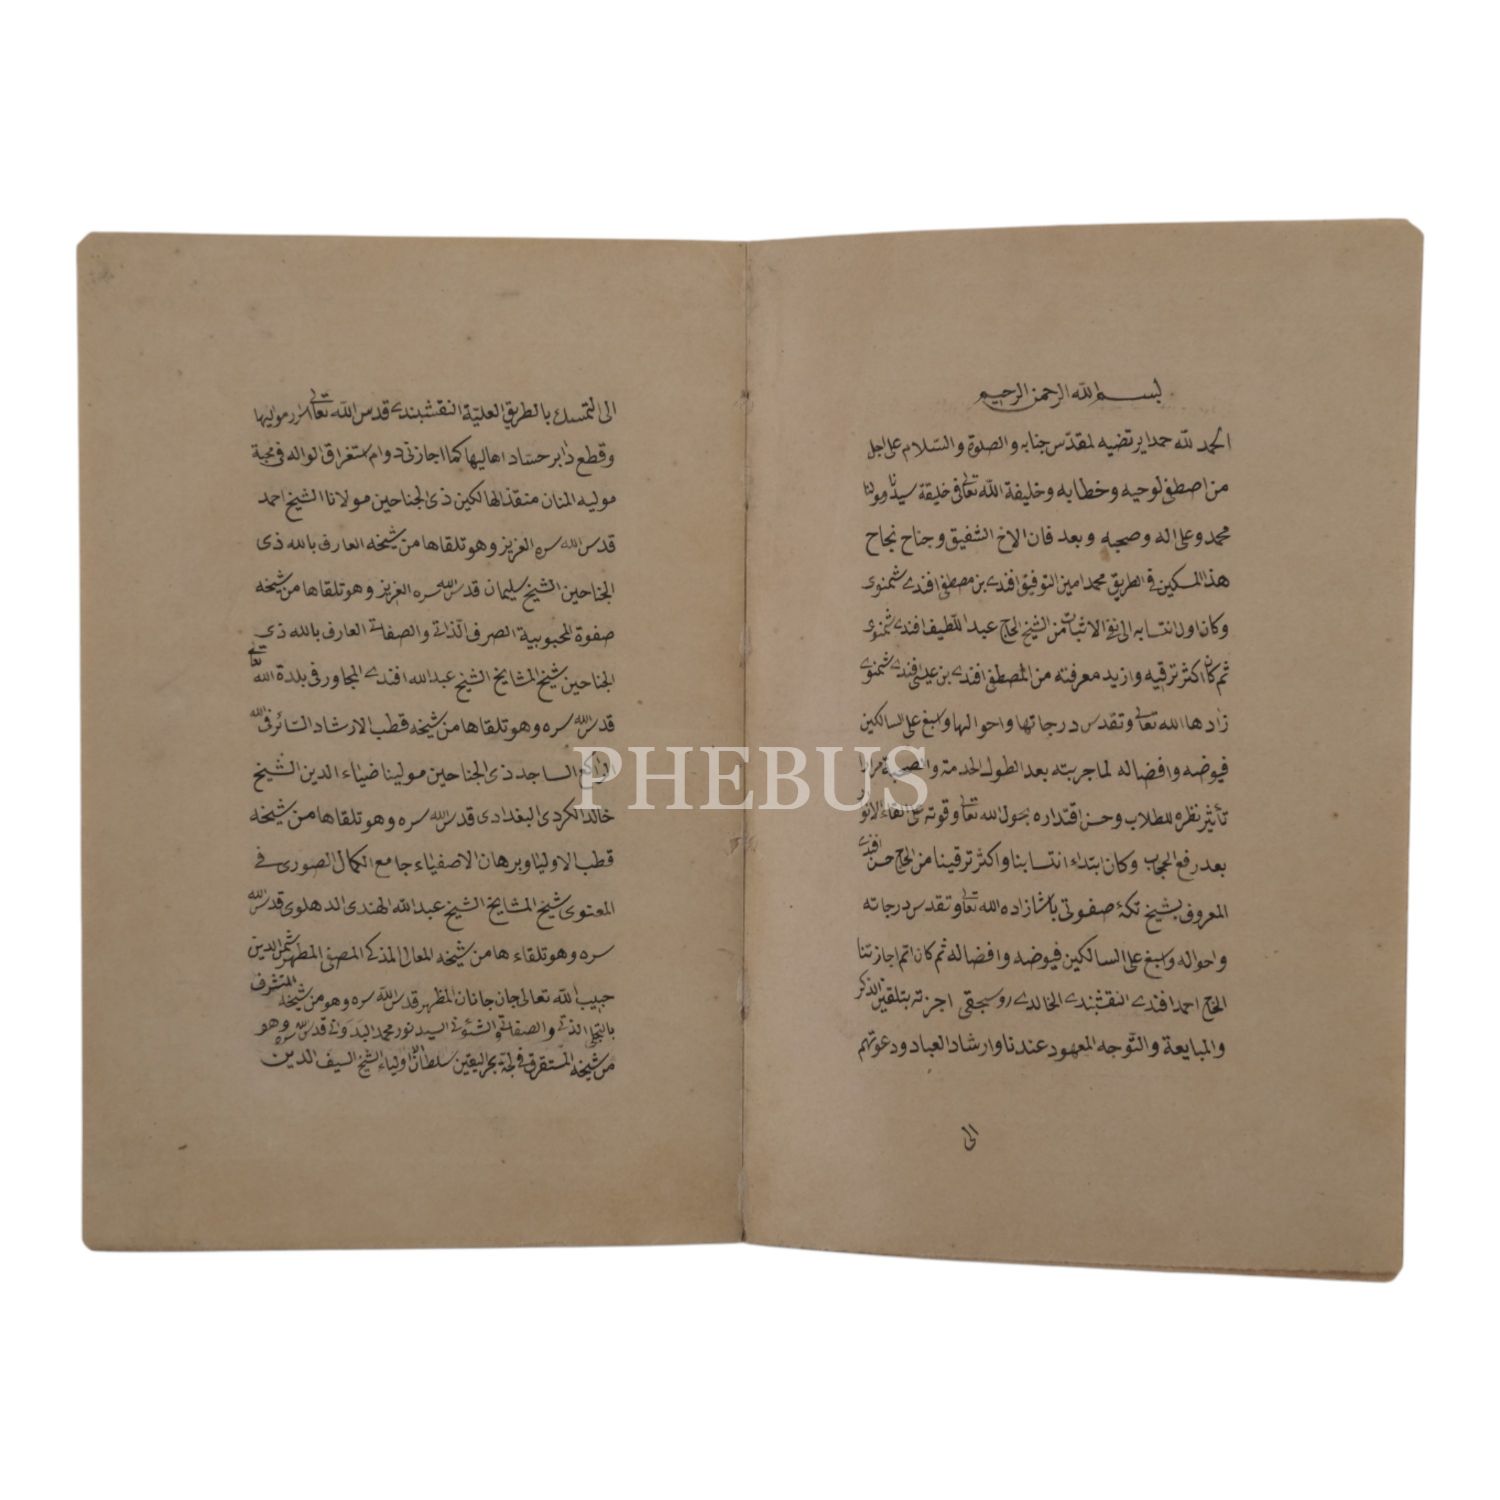 بسم الله الرحمن الرحيم
الحمد لله حمدا يرتضيه لمقدس جنابه والصلوة والسلام على اجل
من اصطفى لوحيه وخطابه وخليفة الله تعالى فى خليقة سيدنا ومولنا
محمد وعلى اله وصحبه وبعد فان الاخ الشفيق وجناح نجاح
هذا المسكين فى الطريق محمد امين التوفيق افندى بن مصطفى افندى شمنوى
وكان اول انتسابه الى نفى الاثبات من الشيخ الحاج عبد اللطيف افندى شمنوى
ثم كان اكثر ترقيه وازيد معرفته من المصطفى افندى بن عيسى افندى شمنوى
زادها الله تعالى وتقدس درجاتها واحوالها واسبغ على السالكين
فيوضه وافضاله لما جربته بعد الطول الخدمة والصحبة مرارا
تأثير نظره للطلاب وحسن اقتداره بحول الله تعالى وقوته على القاء الانوار
بعد رفع الحجاب وكان ابتداء انتسابنا واكثر ترقينا من الحاج حسن افندى
المعروف بشيخ تكۀ صفوتى پاشا زاده الله تعالى وتقدس درجاته
واحواله واسبغ على السالكين فيوضه وافضاله ثم كان اتم اجازتنا
الحاج احمد افندى النقشبندى الخالدى روسجقى اجزته بتلقين الذكر
والمبايعة والتوجه المعهود عندنا وارشاد العباد ودعوتهم
الى
الى التمسك بالطريق العلية النقشبندى قدس الله تعالى اسرار مواليها
وقطع دابر حساد اهاليها كما اجازنى دوام استغراق الواله فى محبة
موليه المنان منقذ الهالكين ذى الجناحين مولانا الشيخ احمد
قدس الله سره العزيز وهو تلقاها من شيخه العارف بالله ذى
الجناحين الشيخ سليمان قدس الله سره العزيز وهو تلقاها من شيخه
صفوة المحبوبية الصرف الذاتى والصفاتى العارف بالله ذى
الجناحين شيخ المشايخ الشيخ عبد الله افندى المجاور فى بلدة الله تعالى
قدس الله سره وهو تلقاها من شيخه قطب الارشاد السائر فى الله
الراكع الساجد ذى الجناحين مولينا ضياء الدين الشيخ
خالد الكردى البغدادى قدس الله سره وهو تلقاها من شيخه
قطب الاولياء وبرهان الاصفياء جامع الكمال الصورى فى
المعنوى شيخ المشايخ الشيخ عبد الله الهندى الدهلوى قدس الله
سره وهو تلقاء ها من شيخه المعال المذكى المصفى المطهر شمس الدين
حبيب الله تعالى جان جانان المظهر قدس الله سره وهو من شيخه المتشرف
بالتجلى الذاتى والصفاتى والشئونى السيد نور محمد البدوانى قدس الله سره وهو
من شيخه المستغرق فى لجة بحر اليقين سلطان الاولياء الشيخ السيف الدين
PHEBUS